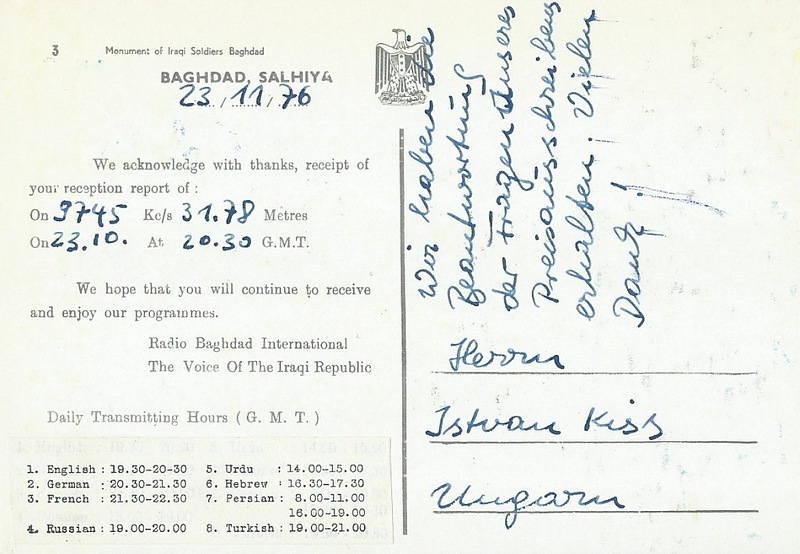 3 Monument of Iraqi Soldiers Baghdad
BAGHDAD, SALHIYA
23/11/76
We acknowledge with thanks, receipt of
your reception report of :
On 9745 Kc/s 31.78 Metres
On 23.10. At 20.30 G.M.T.
We hope that you will continue to receive
and enjoy our programmes.
Radio Baghdad International
The Voice Of The Iraqi Republic
Daily Transmitting Hours ( G. M. T. )
1. English : 19.30-20-30 5. Urdu : 14.00-15.00
2. German : 20.30-21.30 6. Hebrew : 16.30-17.30
3. French : 21.30-22.30 7. Persian : 8.00-11.00
16.00-19.00
4. Russian : 19.00-20.00 8. Turkish : 19.00-21.00
Wir haben die
Beantwortung
der Fragen unseres
Preisausschreibens
erhalten. Vielen
Dank!
Herrn
Istvan Kiss
Ungarn